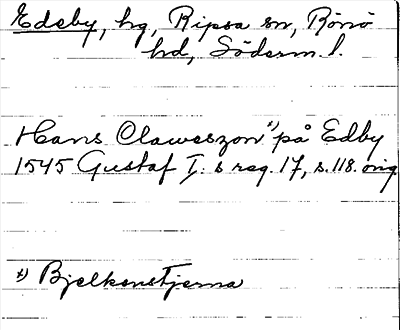 Edeby, hg, Ripsa sn, Rönö
hd, Söderm. l.
Hans Claweszon x) på Edby
1545 Gustaf I:s reg. 17, s. 118. orig
x) Bjelkenstjerna